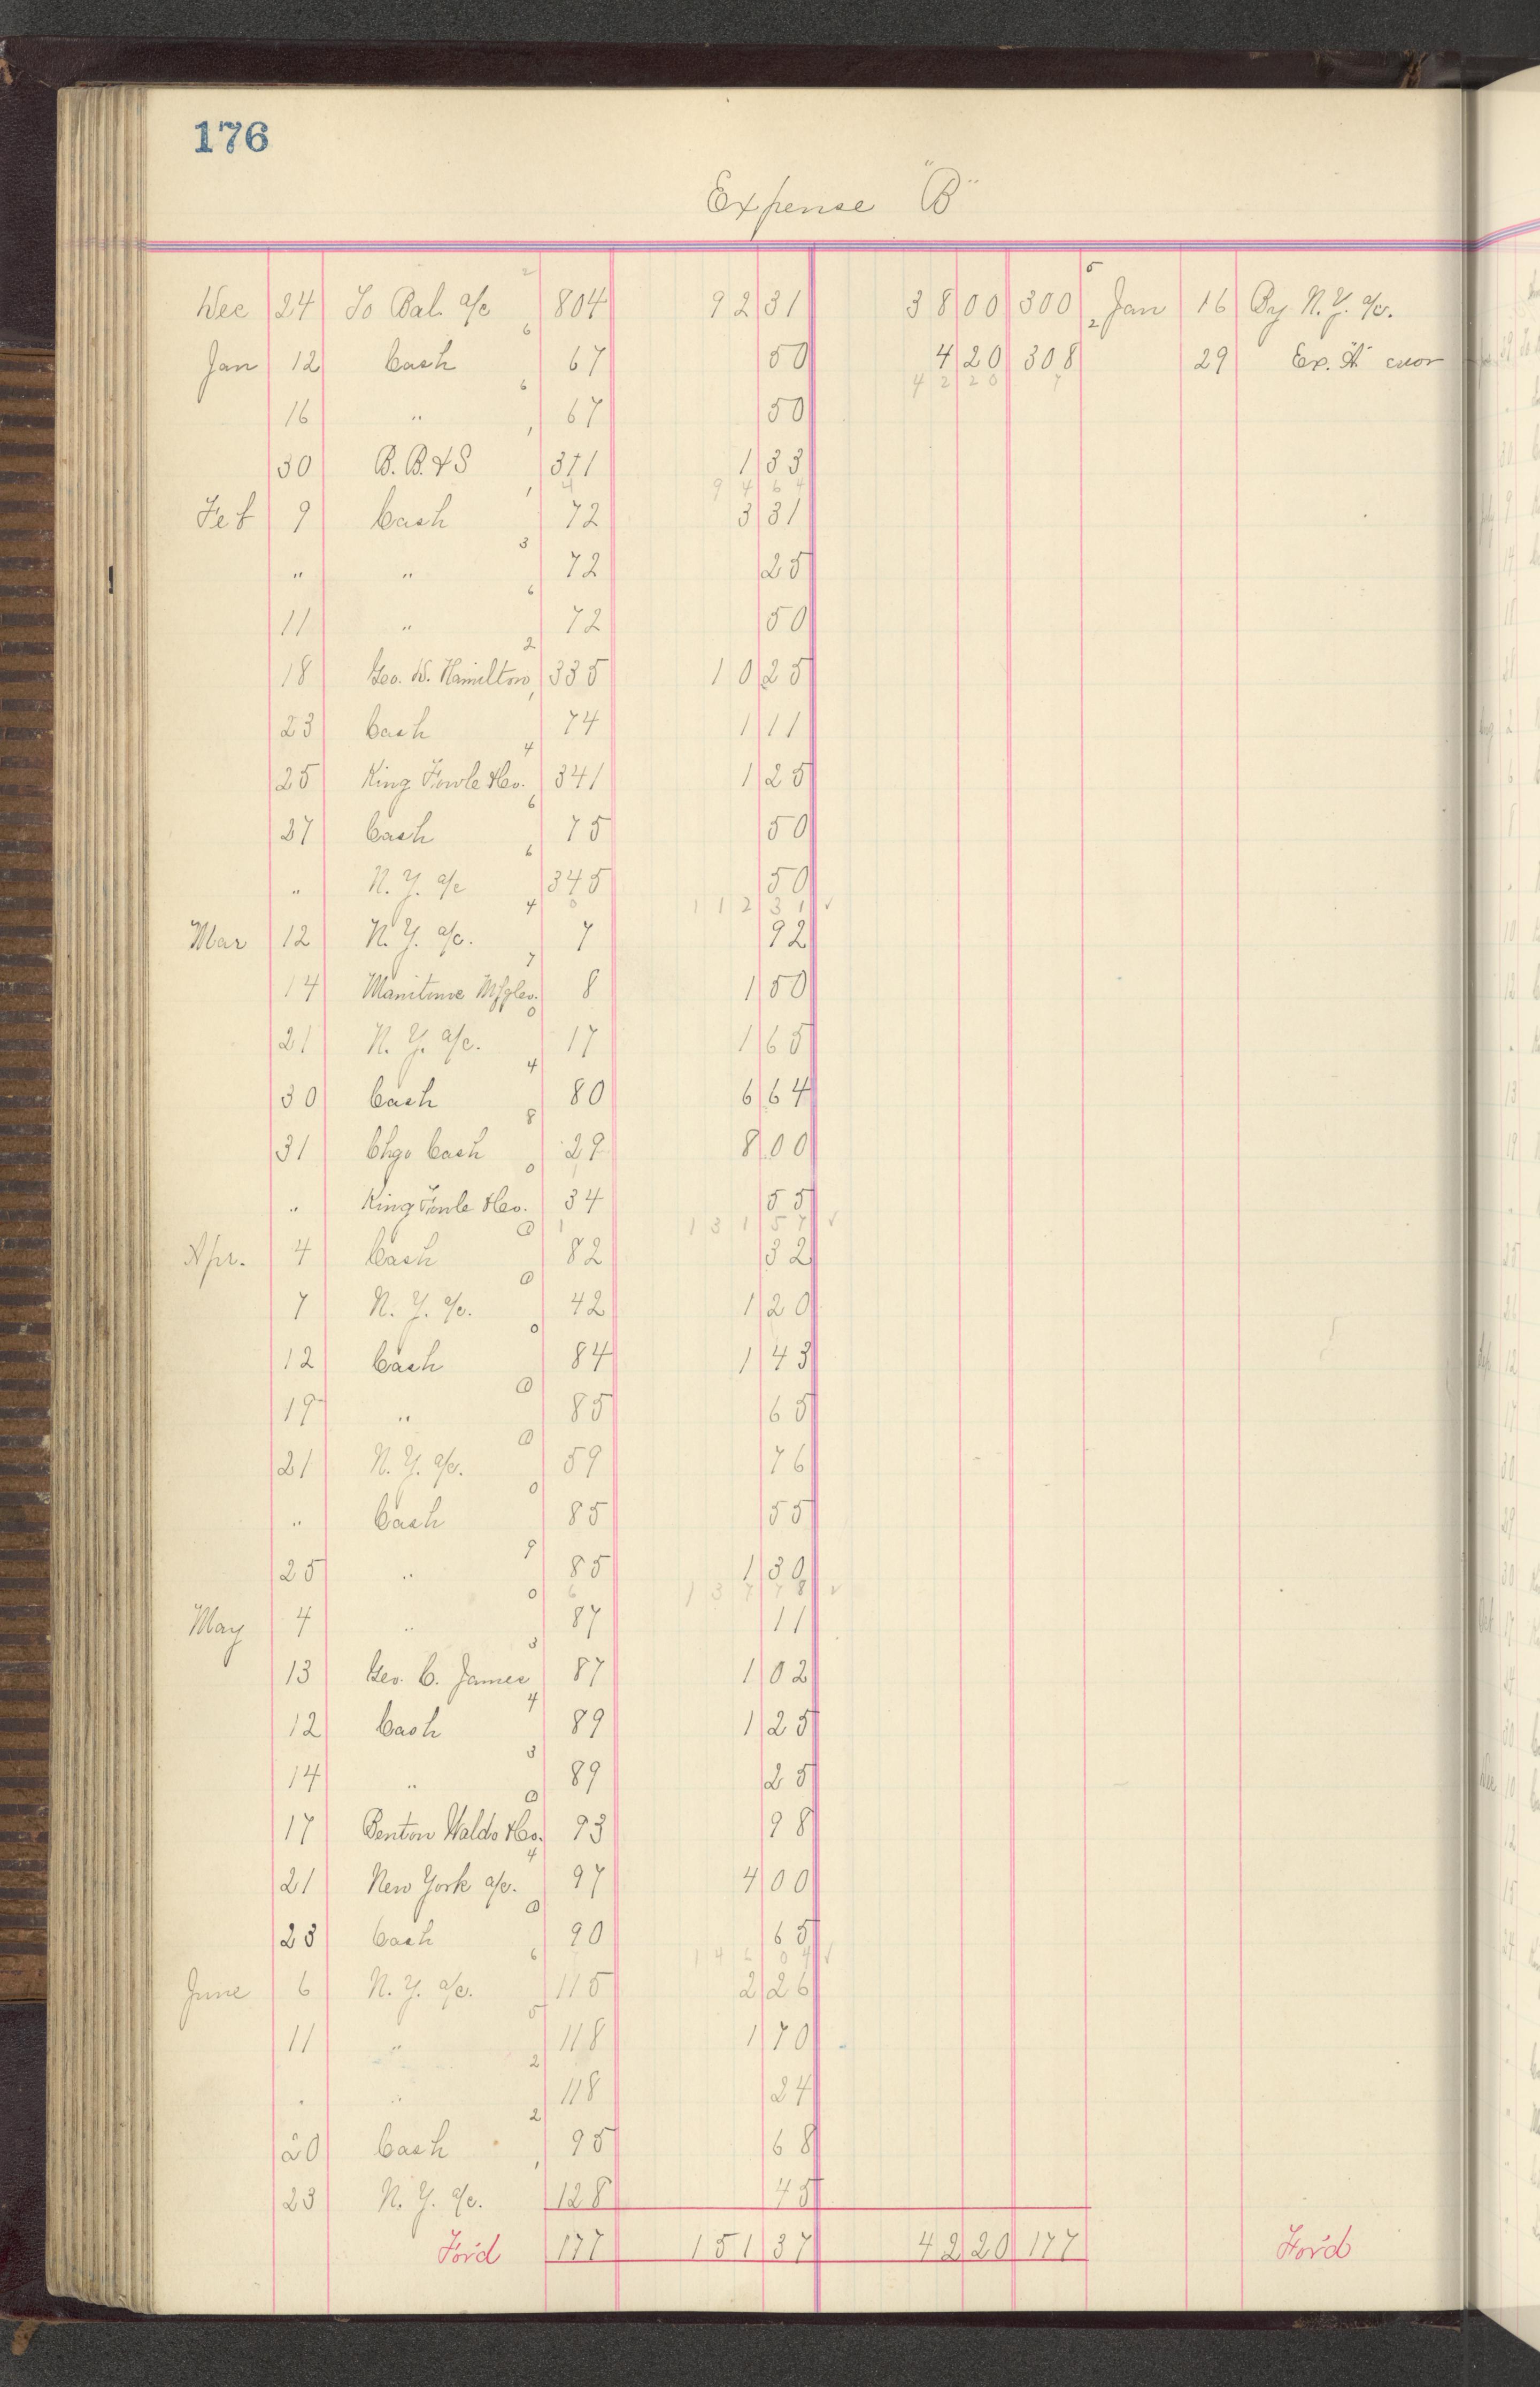 176
Expense "B"
Dec 24 To Bal. a/c 804 92 31 38 00 300 Jan 16 By N. Y. a/c.
Jan 12 Cash 67 50 4 20 308 29 Ex. "A" error
42 20
16 " 67 50
30 B. B. & S 311 1 33
94 64
Feb 9 Cash 72 3 31
" " 72 25
11 " 72 50
18 Geo. W. Hamilton 335 10 25
23 Cash 74 1 11
25 King Fowle & Co. 341 1 25
27 Cash 75 50
" N. Y. a/c 345 50
112 31 ✓
Mar 12 N. Y. a/c. 7 92
14 Manitowoc Mfg Co. 8 1 50
21 N. Y. a/c. 17 1 65
30 Cash 80 6 64
31 Chgo Cash 29 8 00
" King Fowle & Co. 34 55
131 57 ✓
Apr. 4 Cash 82 32
7 N. Y. a/c. 42 1 20
12 Cash 84 1 43
19 " 85 65
21 N. Y. a/c. 59 76
" Cash 85 55
25 " 85 1 30
137 78 ✓
May 4 " 87 11
13 Geo. C. James 87 1 02
12 Cash 89 1 25
14 " 89 25
17 Benton Waldo & Co. 93 98
21 New York a/c. 97 4 00
23 Cash 90 65
146 04 ✓
June 6 N. Y. a/c. 115 2 26
11 " 118 1 70
" " 118 24
20 Cash 95 68
23 N. Y. a/c. 128 45
For'd 177 151 37 42 20 177 For'd